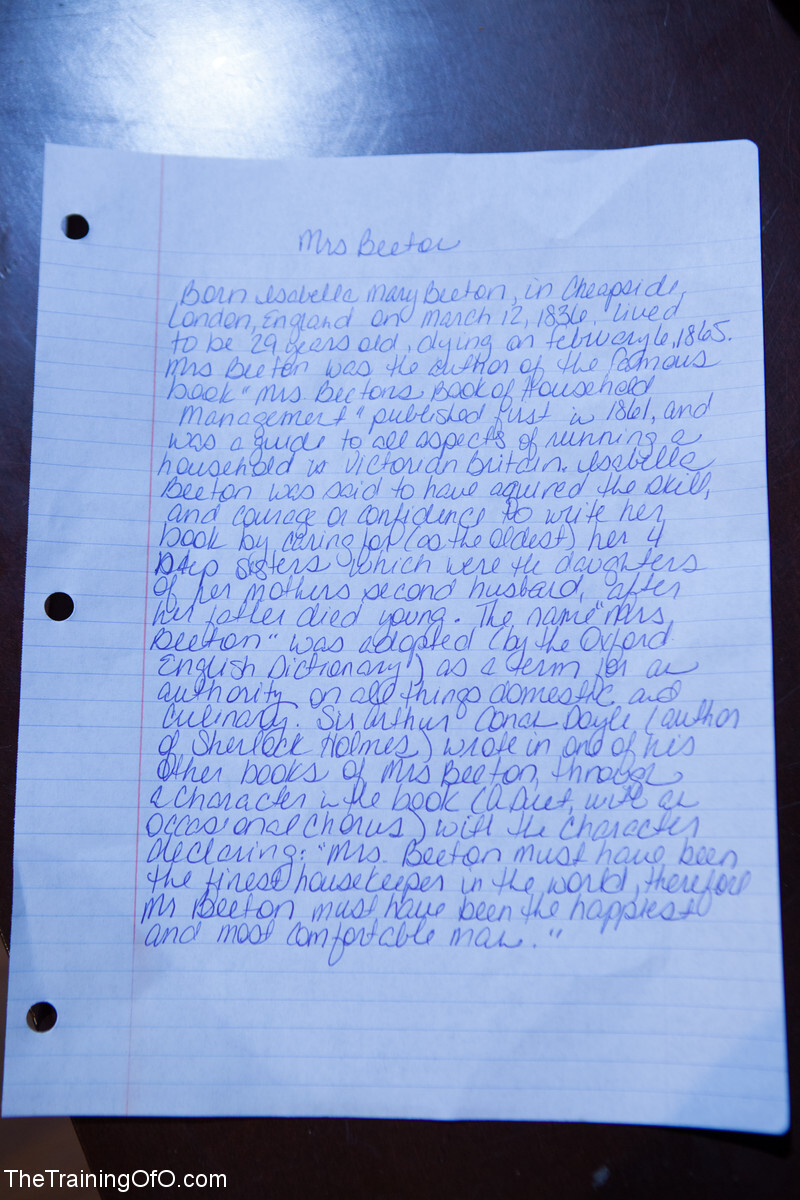 Mrs Beeton
Born Isabella Mary Beeton, in Cheapside,
London, England on March 12, 1836. Lived
to be 29 years old, dying on february 6, 1865.
Mrs Beeton was the author of the famous
book "Mrs. Beetons Book of Household
Management" published first in 1861, and
was a guide to all aspects of running a
household in Victorian Britain. Isabella
Beeton was said to have aquired the skill,
and courage or confidence to write her
book by caring for (as the oldest) her 4
step sisters which were the daughters
of her mothers second husband, after
her father died young. The name "Mrs
Beeton" was adopted (by the Oxford
English Dictionary) as a term for an
authority on all things domestic and
culinary. Sir Arthur Conan Doyle (author
of Sherlock Holmes) wrote in one of his
other books of Mrs Beeton, through
a character in the book (a Duet, with an
occasional chorus) with the character
declaring: "Mrs. Beeton must have been
the finest housekeeper in the world, therefore
Mr Beeton must have been the happiest
and most comfortable man."
TheTrainingOfO.com